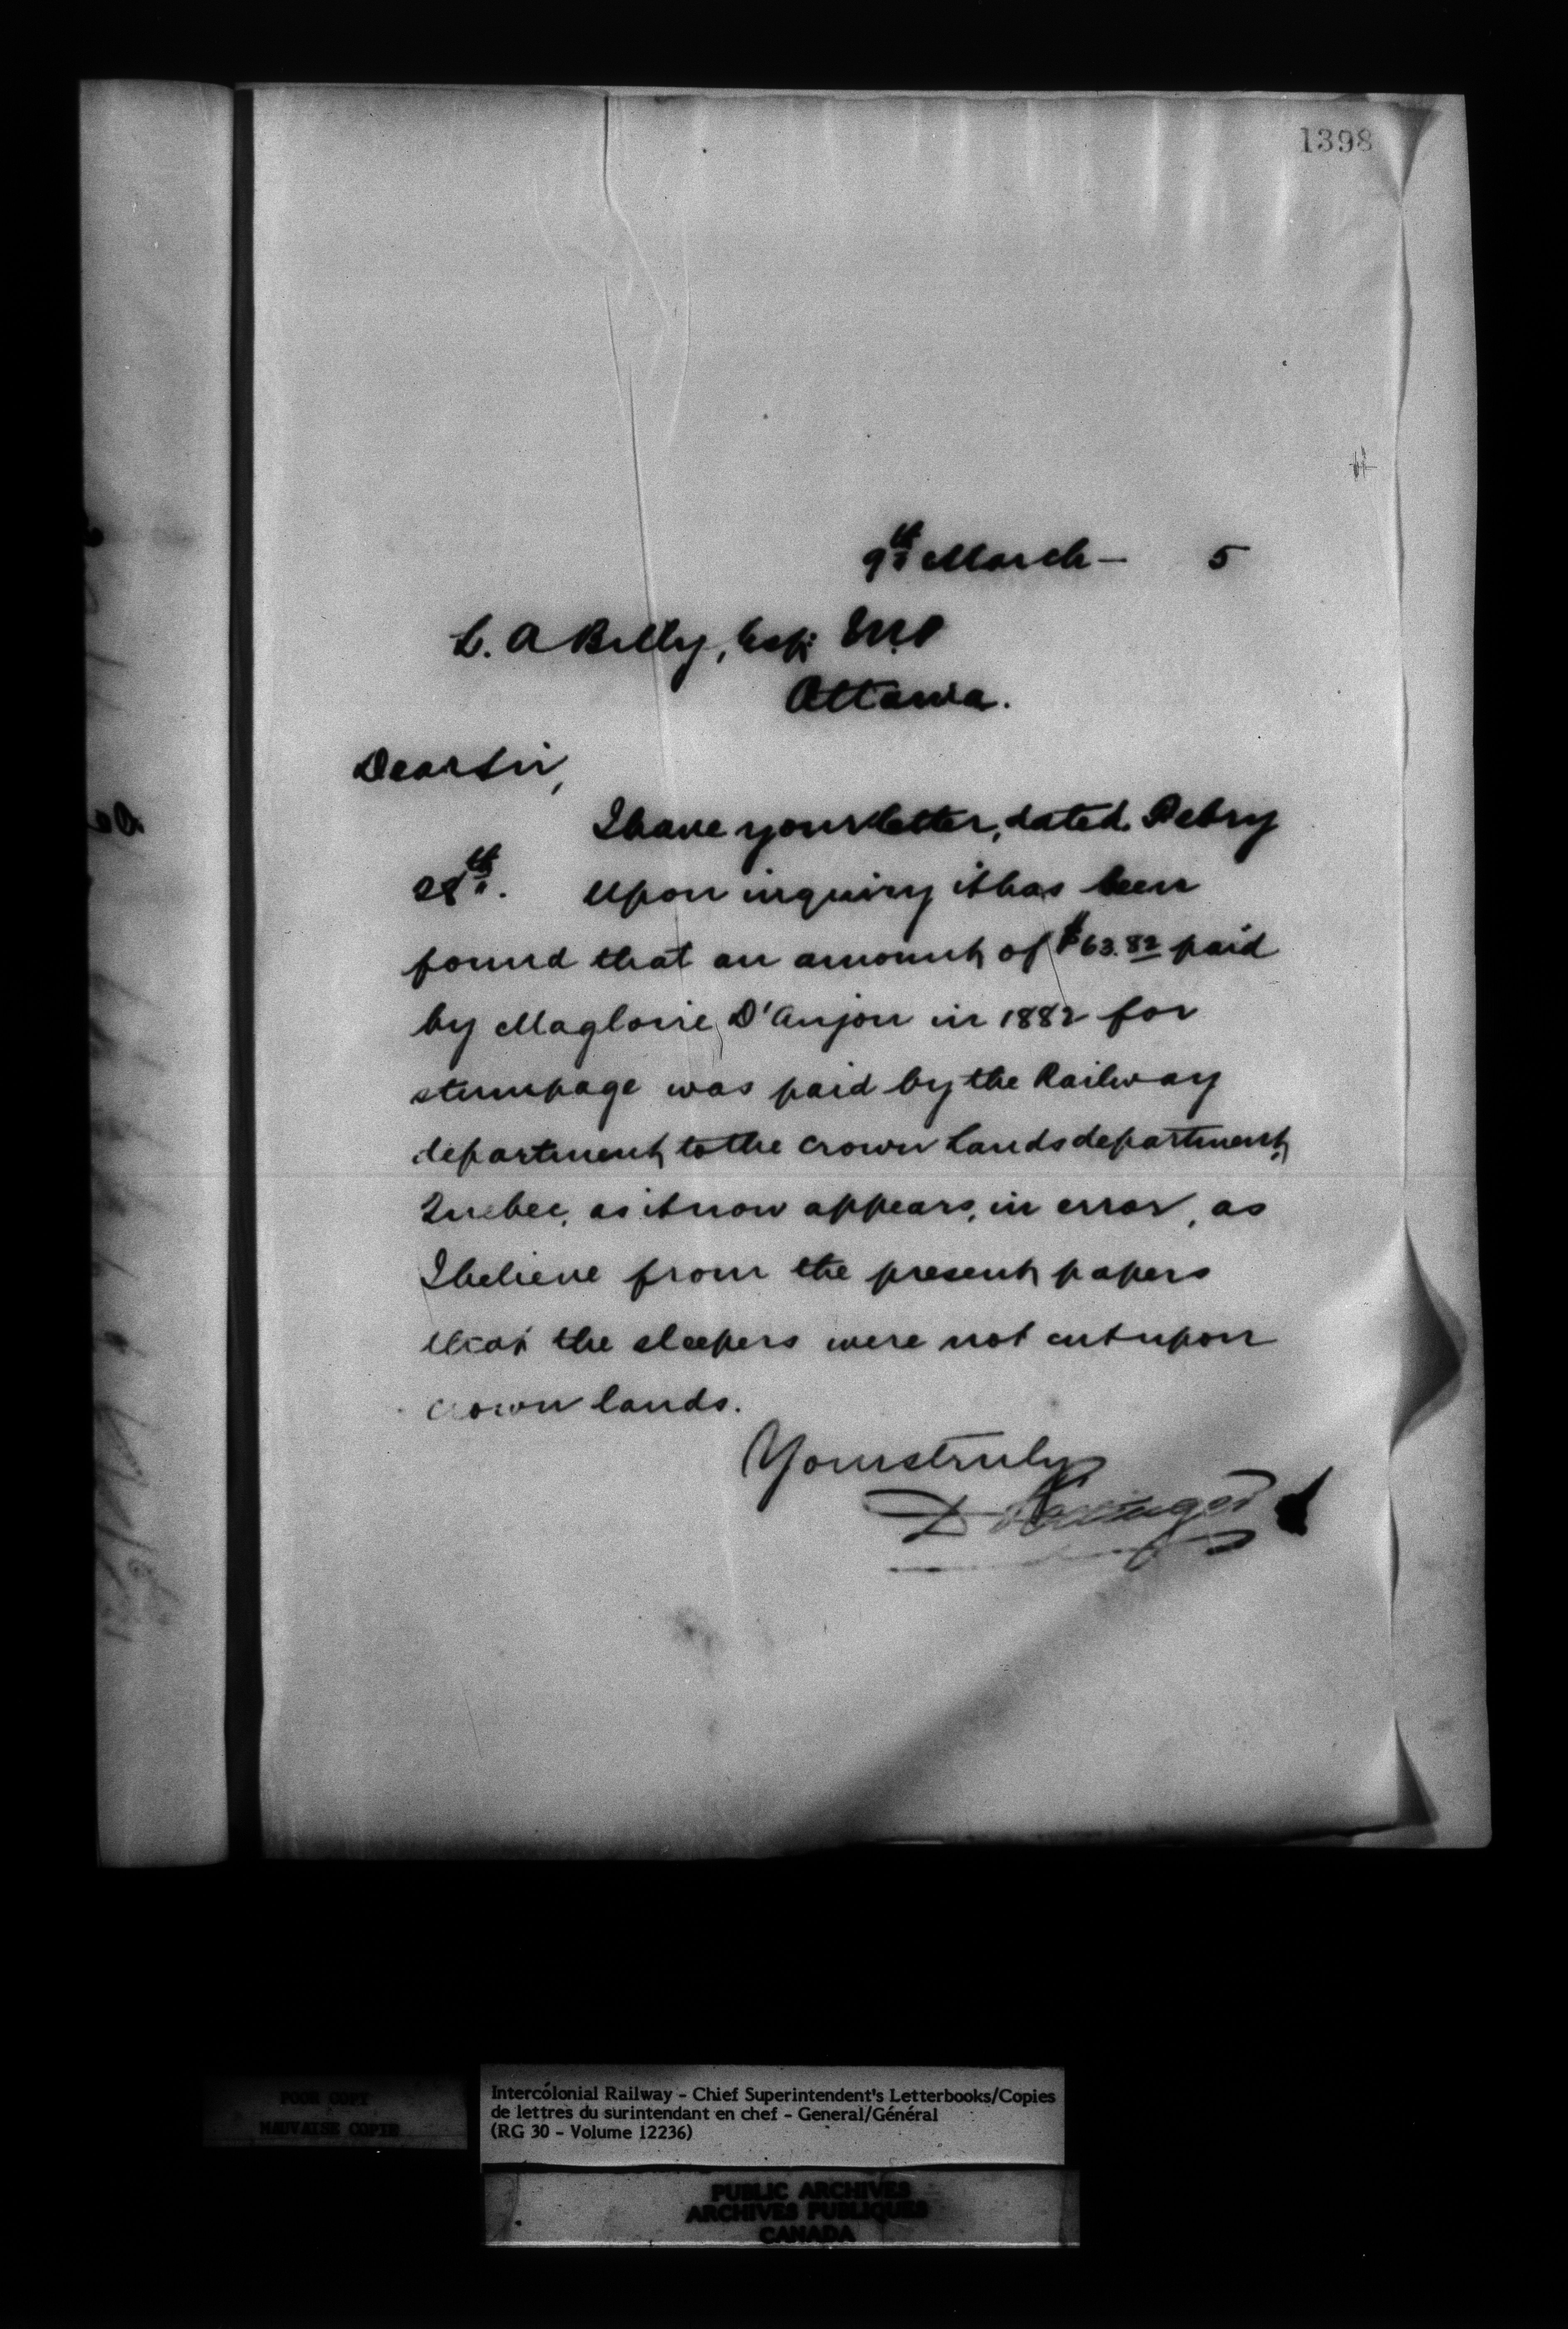 1398
9th March - 5
L. A Billy, Esq; M.P
Ottawa.
Dear Sir,
I have your letter, dated Febry
28th. Upon inquiry it has been
found that an amount of $63.82 paid
by Magloire D'Anjou in 1882 for
stumpage was paid by the Railway
department to the Crown Lands department,
Quebec, as it now appears, in error, as
I believe from the present papers
that the sleepers were not cut upon
crown lands.
Yours truly
D Pottinger
POOR COPY
MAUVAISE COPIE
Intercolonial Railway - Chief Superintendent's Letterbooks/Copies
de lettres du surintendant en chef - General/Général
(RG 30 - Volume 12236)
PUBLIC ARCHIVES
ARCHIVES PUBLIQUES
CANADA